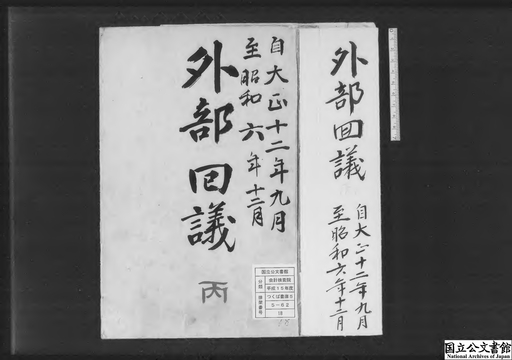 外部回議
自大正十二年九月
至昭和六年十二月
自大正十二年九月
至昭和六年十二月
外部回議
丙
国立公文書館
分類
会計検査院
平成15年度
つくば書庫5
排架番号
5-62
国立公文書館
National Archives of Japan